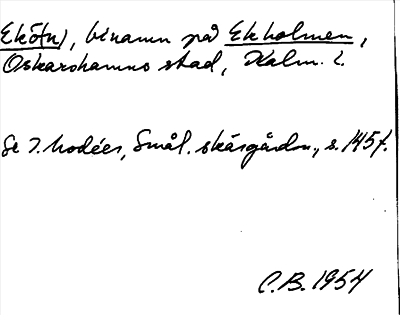 Ekö(n), binamn på Ekholmen,
Oskarshamns stad, Kalm. l.
Se T. Modéer, Smål. skärgårdsn., s. 145 f.
C.B. 1954